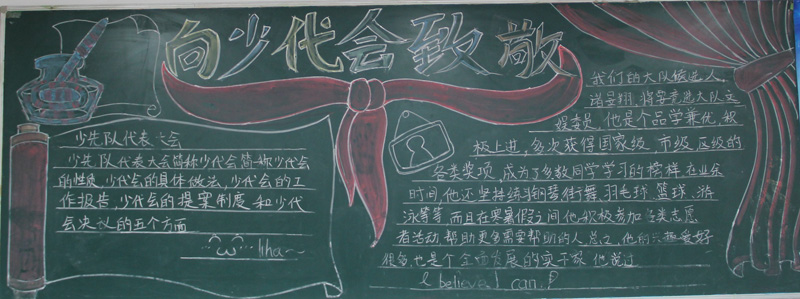 向少代会致敬
少先队代表大会
少先队代表大会简称少代会简称少代会
的性质,少代会的具体做法,少代会的工
作报告,少代会的提案制度和少代
会决议的五个方面
我们的大队候选人,
翔,将竞选大队文
娱委员,他是个品学兼优,积
极上进,多次获得国家级、市级、区级的
各类奖项,成为了多数同学学习的榜样,在业余
时间,他还坚持练习钢琴、街舞、羽毛球、篮球、游
泳等等,而且在寒暑假之间他积极参加各类志愿
者活动,帮助更多需要帮助的人,总之,他的兴趣爱好
很多,也是个全面发展的 他说过
I believe I can!